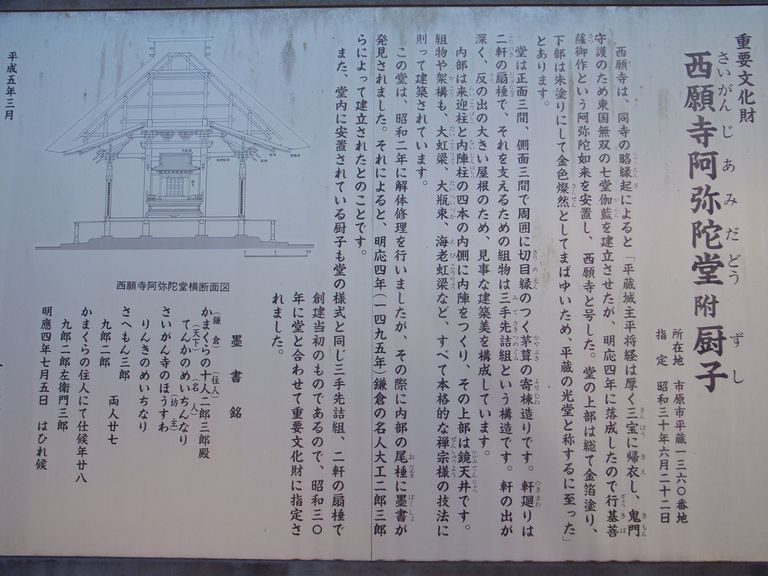 重要文化財
西願寺阿弥陀堂 附 厨子
さいがんじあみだどう ずし
所在地 市原市平蔵一三六〇番地
指定 昭和三十年六月二十二日
西願寺は、同寺の略縁起によると「平蔵城主平将経は厚く三宝に帰衣し、鬼門
守護のため東国無双の七堂伽藍を建立させたが、明応四年に落成したので行基菩
薩御作という阿弥陀如来を安置し、西願寺と号した。堂の上部は総て金箔塗り、
下部は朱塗りにして金色燦然としてまばゆいため、平蔵の光堂と称するに至った」
とあります。
堂は正面三間、側面三間で周囲に切目縁のつく茅葺の寄棟造りです。軒廻りは
二軒の扇棰で、それを支えるための組物は三手先詰組という構造です。軒の出が
深く、反の出の大きい屋根のため、見事な建築美を構成しています。
内部は来迎柱と内陣柱の四本の内側に内陣をつくり、その上部は鏡天井です。
組物や架構も、大虹梁、大瓶束、海老虹梁など、すべて本格的な禅宗様の技法に
則って建築されています。
この堂は、昭和二年に解体修理を行いましたが、その際に内部の尾棰に墨書が
発見されました。それによると、明応四年(一四九五年)鎌倉の名人大工二郎三郎
らによって建立されたとのことです。
また、堂内に安置されている厨子も堂の様式と同じ三手先詰組、二軒の扇棰で
創建当初のものであるので、昭和三〇
年に堂と合わせて重要文化財に指定さ
れました。
西願寺阿弥陀堂横断面図
墨書銘
(鎌倉) (住人)
かまくらの十人二郎三郎殿
(天下) (名人)
てんかのめいちんなり
(坊主)
さいがん寺のほうすわ
りんきのめいちなり
さへもん三郎
九郎二郎 両人廿七
かまくらの住人にて仕候年廿八
九郎二郎左衛門三郎
明應四年七月五日 はひれ候
平成五年三月